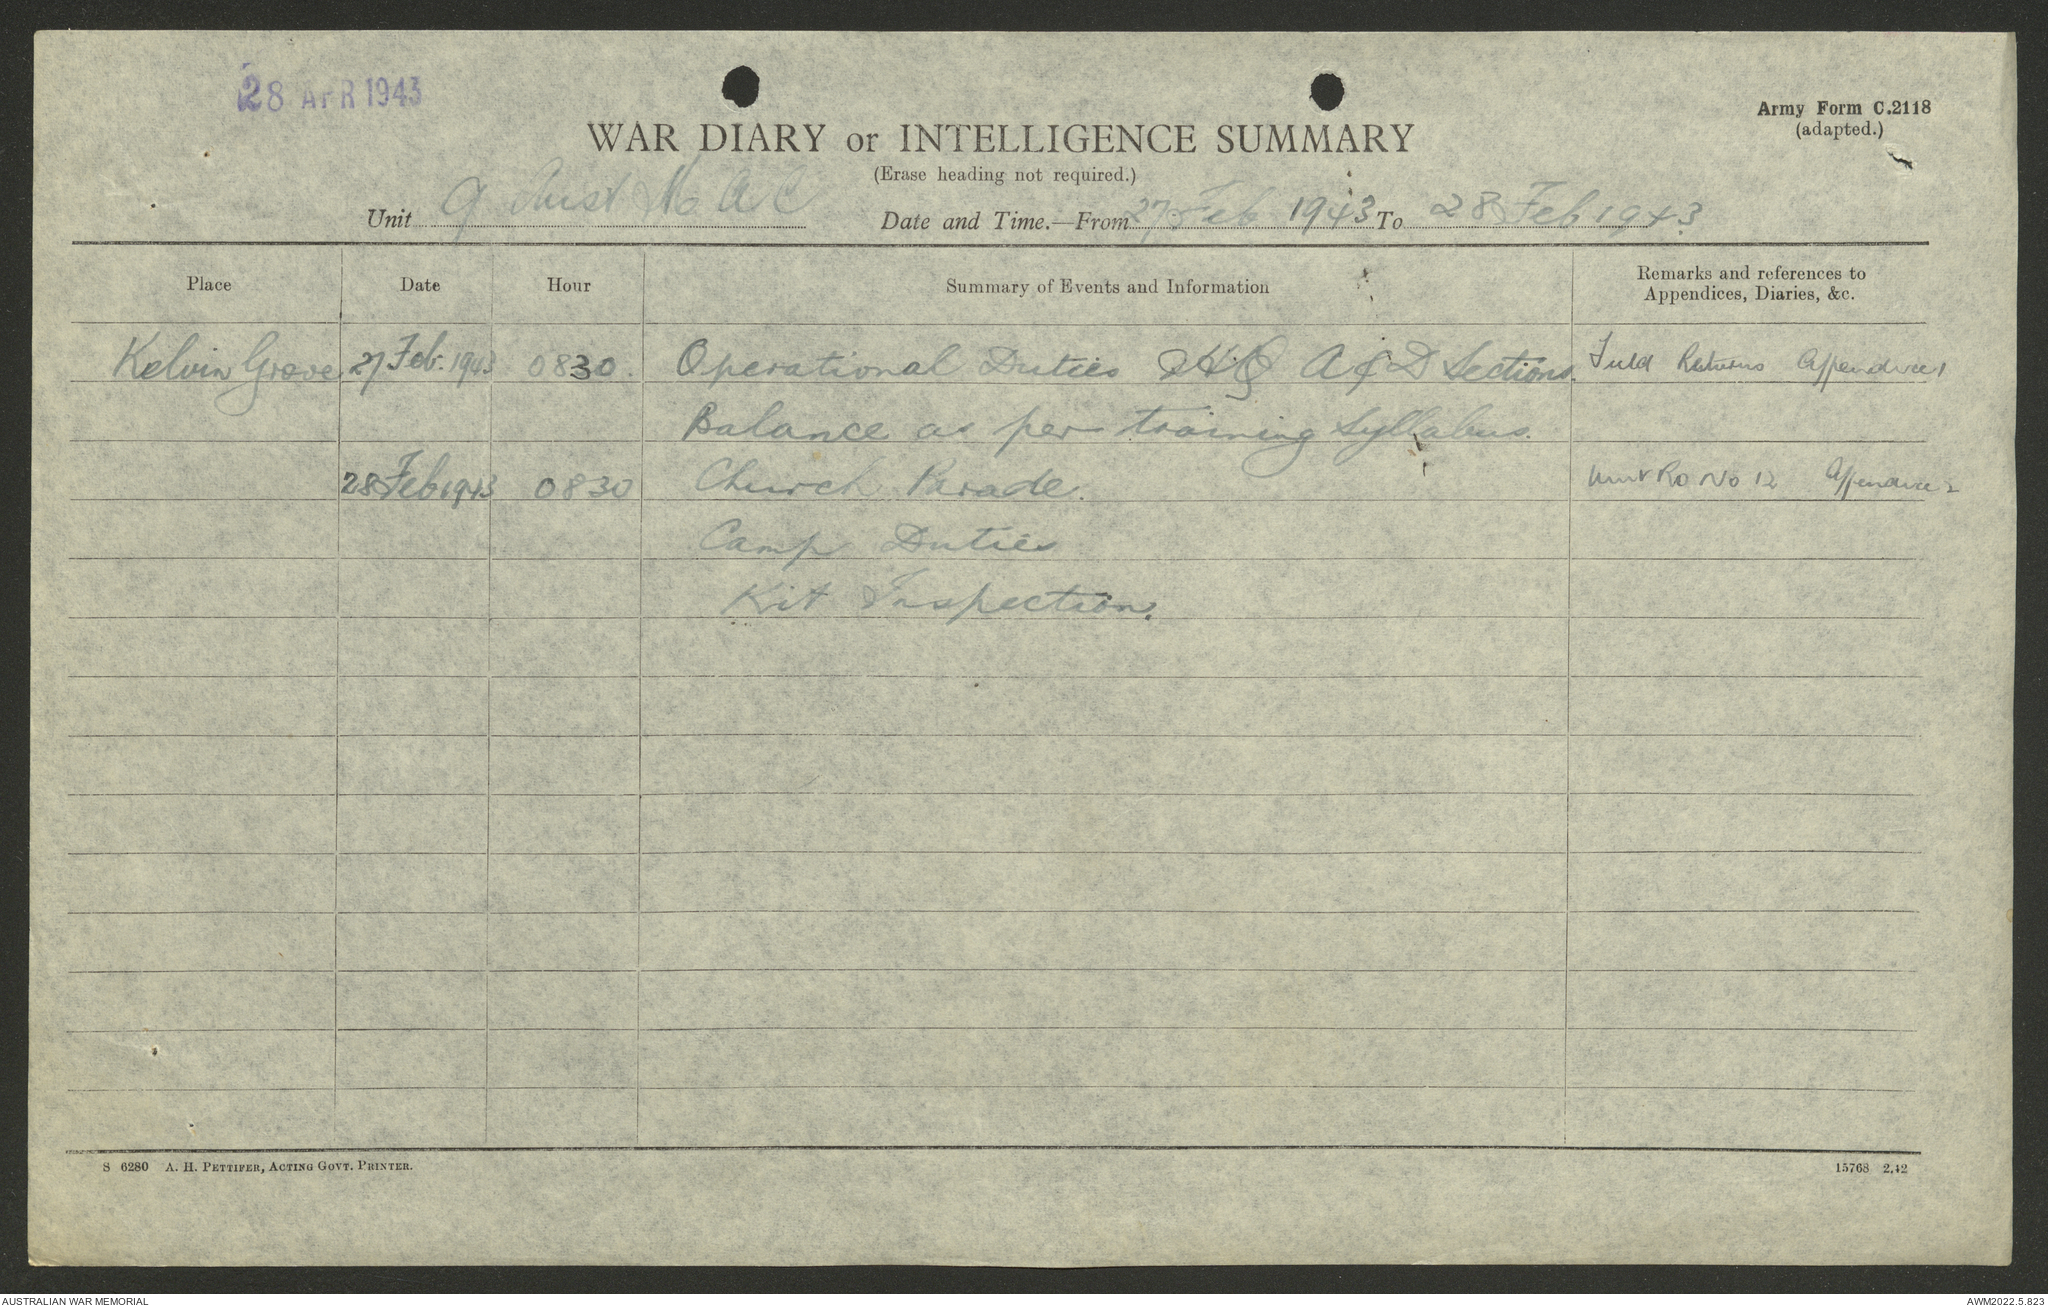 28 APR 1943
Army Form C.2118
(adapted.)
WAR DIARY or INTELLIGENCE SUMMARY
(Erase heading not required.)
Unit 9 Aust M A C Date and Time.—From 27 Feb 1943 To 28 Feb 1943
Place Date Hour Summary of Events and Information Remarks and references to
Appendices, Diaries, &c.
Kelvin Grove 27 Feb. 1943 0830. Operational Duties HQ A & D Sections. Field Returns Appendices 1
Balance as per training Syllabus.
28 Feb 1943 0830 Church Parade. Unit RO No 12 Appendice 2
Camp Duties
Kit Inspection.
S 6280 A. H. PETTIFER, ACTING GOVT. PRINTER.
15768 2.42
AUSTRALIAN WAR MEMORIAL
AWM2022.5.823